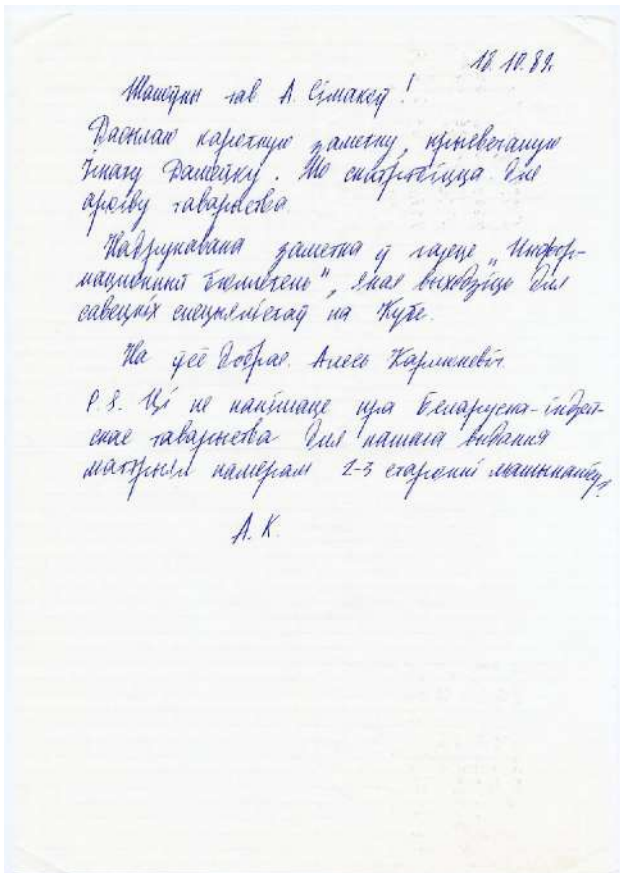 18.10.89.
Шаноўны тав. А. Сімакоў!
Дасылаю кароткую заметку, прысвечаную
Ігнату Дамейку. Мо спатрэбіцца для
архіву таварыства.
Надрукавана заметка ў газеце „Инфор-
мационный бюллетень", якая выходзіць для
савецкіх спецыялістаў на Кубе.
На ўсё добрае. Алесь Карлюкевіч.
P.S. Ці не напішаце пра Беларуска-індзей-
скае таварыства для нашага выдання
матэрыял памерам 2-3 старонкі машынапісу?
А.К.